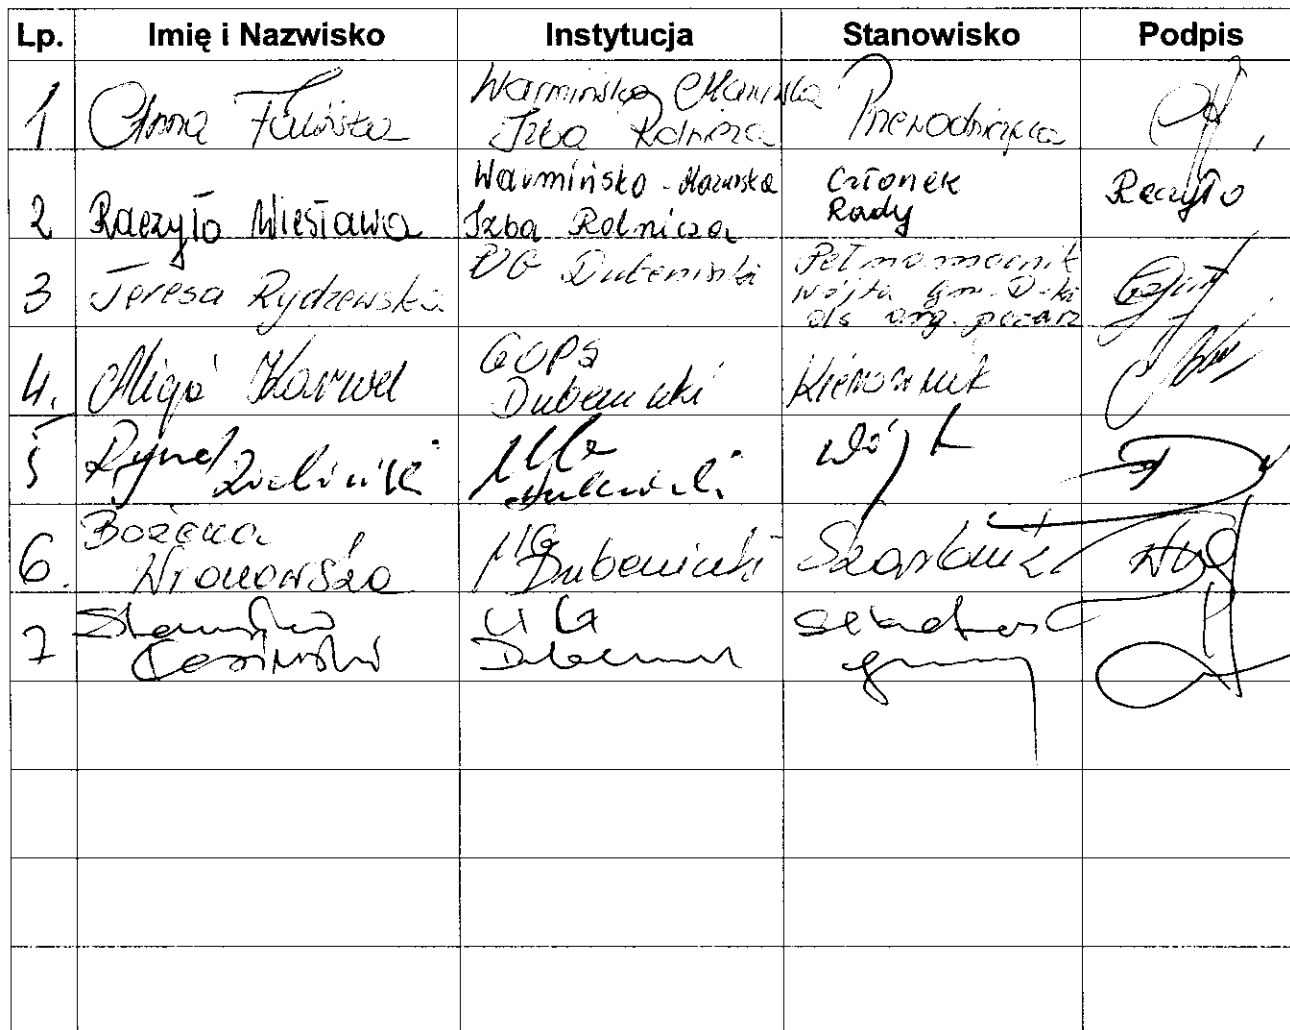 Lp. Imię i Nazwisko Instytucja Stanowisko Podpis
1 Anna Warmińsko Mazurska
Izba Rolnicza Przewodnicząca
2 Raczyło Wiesława Warmińsko-Mazurska
Izba Rolnicza Członek
Rady Raczyło
3 Teresa Rydzewska UG Dubeninki Pełnomocnik
Wójta Gm. D-ki
ds org. pozarz
4. Alicja Karwel GOPS
Dubeninki Kierownik
5 Ryszard
Zieliński UG
Dubeninki Wójt
6. Bożena
Wronowska UG
Dubeninki Skarbnik
7 Stanisław UG
Dubeninki sekretarz
gminy